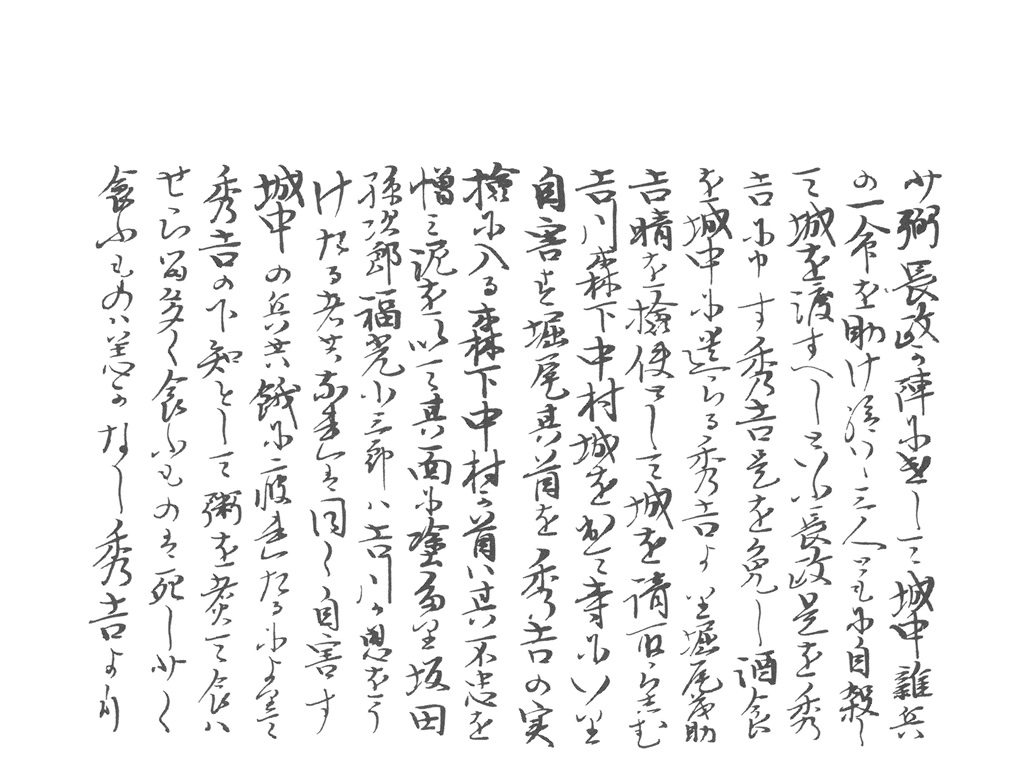 少弼長政の陣に来して城中雑兵
の一命を助け給はゝ三人ともに自殺し
て城を渡すへしといふ長政是を秀
吉に申す秀吉是を免し酒食
を城中に送らる秀吉より堀尾茂助
吉晴を検使として城を請取らしむ
吉川森下中村城を出て寺にいり
自害す堀尾其首を秀吉の実
検に入る森下中村の首は其不忠を
憎み泥を以て其面に塗るなり坂田
孫次郎福光小三郎は吉川か恩をう
けたる者共なれは同く自害す
城中の兵共餓に疲れたるによりて
秀吉の下知として粥を煮て食は
せらる多く食ふものは死し少く
食ふものは恙かなし秀吉より